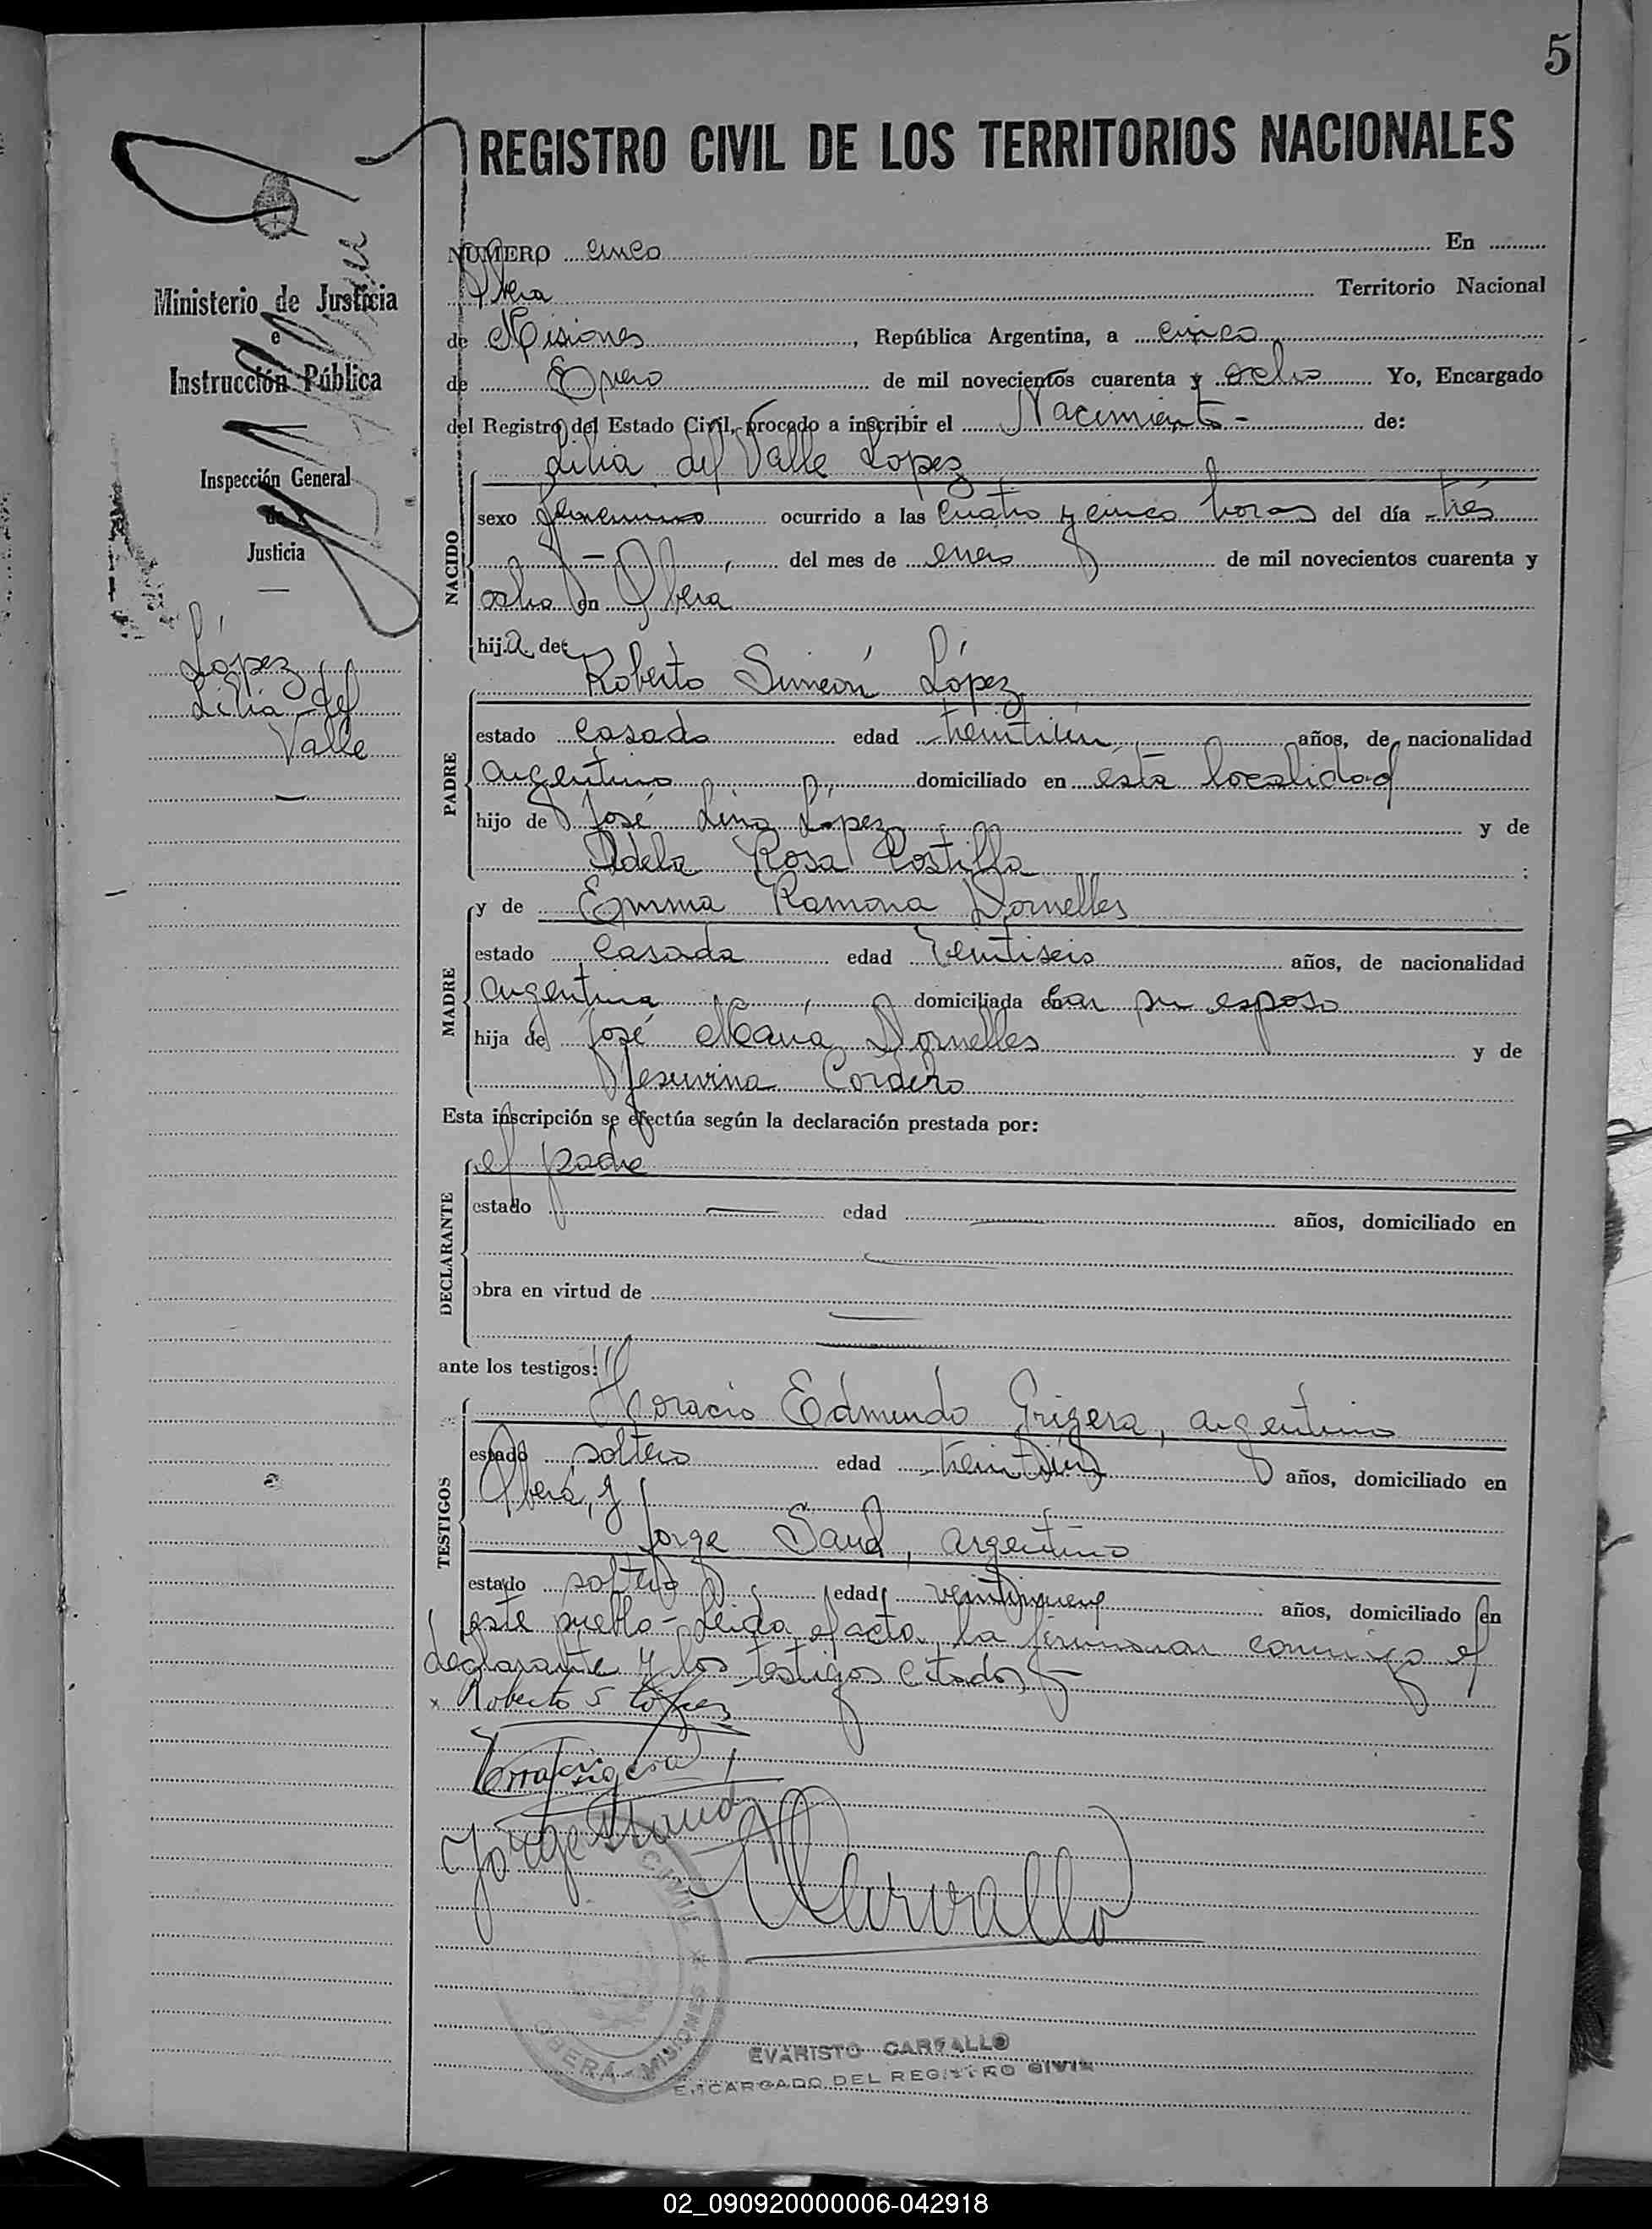 5
REGISTRO CIVIL DE LOS TERRITORIOS NACIONALES
Ministerio de Justicia
e
Instrucción Pública
Inspección General
de
Justicia
López
Lilia del
Valle
NUMERO cinco En
Obera Territorio Nacional
de Misiones, República Argentina, a cinco
de Enero de mil novecientos cuarenta y ocho Yo, Encargado
del Registro del Estado Civil, procedo a inscribir el Nacimiento - de:
Lilia del Valle Lopez
NACIDO
sexo femenino ocurrido a las cuatro y cinco horas del día tres
—, del mes de enero de mil novecientos cuarenta y
ocho en Obera
hija de:
Roberto Simeón López
PADRE
estado casado edad treintiún años, de nacionalidad
argentino domiciliado en esta localidad
hijo de José Lino López y de
Adela Rosa Costilla ;
y de Emma Ramona Dornelles
MADRE
estado casada edad veintiseis años, de nacionalidad
argentina, domiciliada en con su esposo
hija de José Maria Dornelles y de
Cordero
Esta inscripción se efectúa según la declaración prestada por:
el padre
DECLARANTE
estado — edad — años, domiciliado en
obra en virtud de
ante los testigos:
Horacio Edmundo Grigera, argentino
TESTIGOS
estado soltero edad treintiún años, domiciliado en
Oberá, y
Jorge Saud, argentino
estado soltero edad veintinueve años, domiciliado en
este pueblo - Leida el acta, la firman conmigo el
declarante y los testigos citados
x Roberto S López
Jorge Saud
Carvallo
CIVIL * MISIONES
OBERÁ - MISIONES
EVARISTO CARVALLO
ENCARGADO DEL REGISTRO CIVIL
02_090920000006-042918